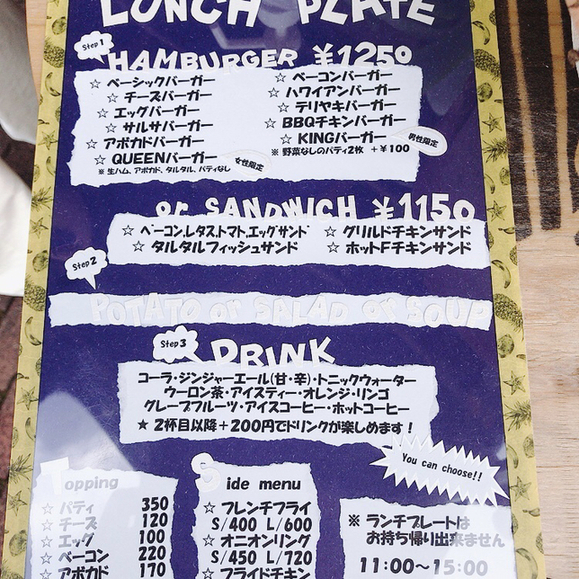 LUNCH PLATE
Step1
HAMBURGER ¥1250
☆ ベーシックバーガー
☆ チーズバーガー
☆ エッグバーガー
☆ サルサバーガー
☆ アボカドバーガー
☆ QUEENバーガー 女性限定
※ 生ハム、アボカド、タルタル、パティなし
☆ ベーコンバーガー
☆ ハワイアンバーガー
☆ テリヤキバーガー
☆ BBQチキンバーガー
☆ KINGバーガー 男性限定
※ 野菜なしのパティ2枚 +¥100
or SANDWICH ¥1150
☆ ベーコン,レタス,トマト,エッグサンド
☆ タルタルフィッシュサンド
☆ グリルドチキンサンド
☆ ホットFチキンサンド
Step2
POTATO or SALAD or SOUP
Step3
DRINK
コーラ・ジンジャーエール(甘・辛)・トニックウォーター
ウーロン茶・アイスティー・オレンジ・リンゴ
グレープフルーツ・アイスコーヒー・ホットコーヒー
★ 2杯目以降+200円でドリンクが楽しめます!
You can choose!!
Topping
☆ パティ 350
☆ チーズ 120
☆ エッグ 100
☆ ベーコン 220
☆ アボカド 170
Side menu
☆ フレンチフライ
S/400 L/600
☆ オニオンリング
S/450 L/720
☆ フライドチキン
※ ランチプレートは
お持ち帰り出来ません
11:00~15:00